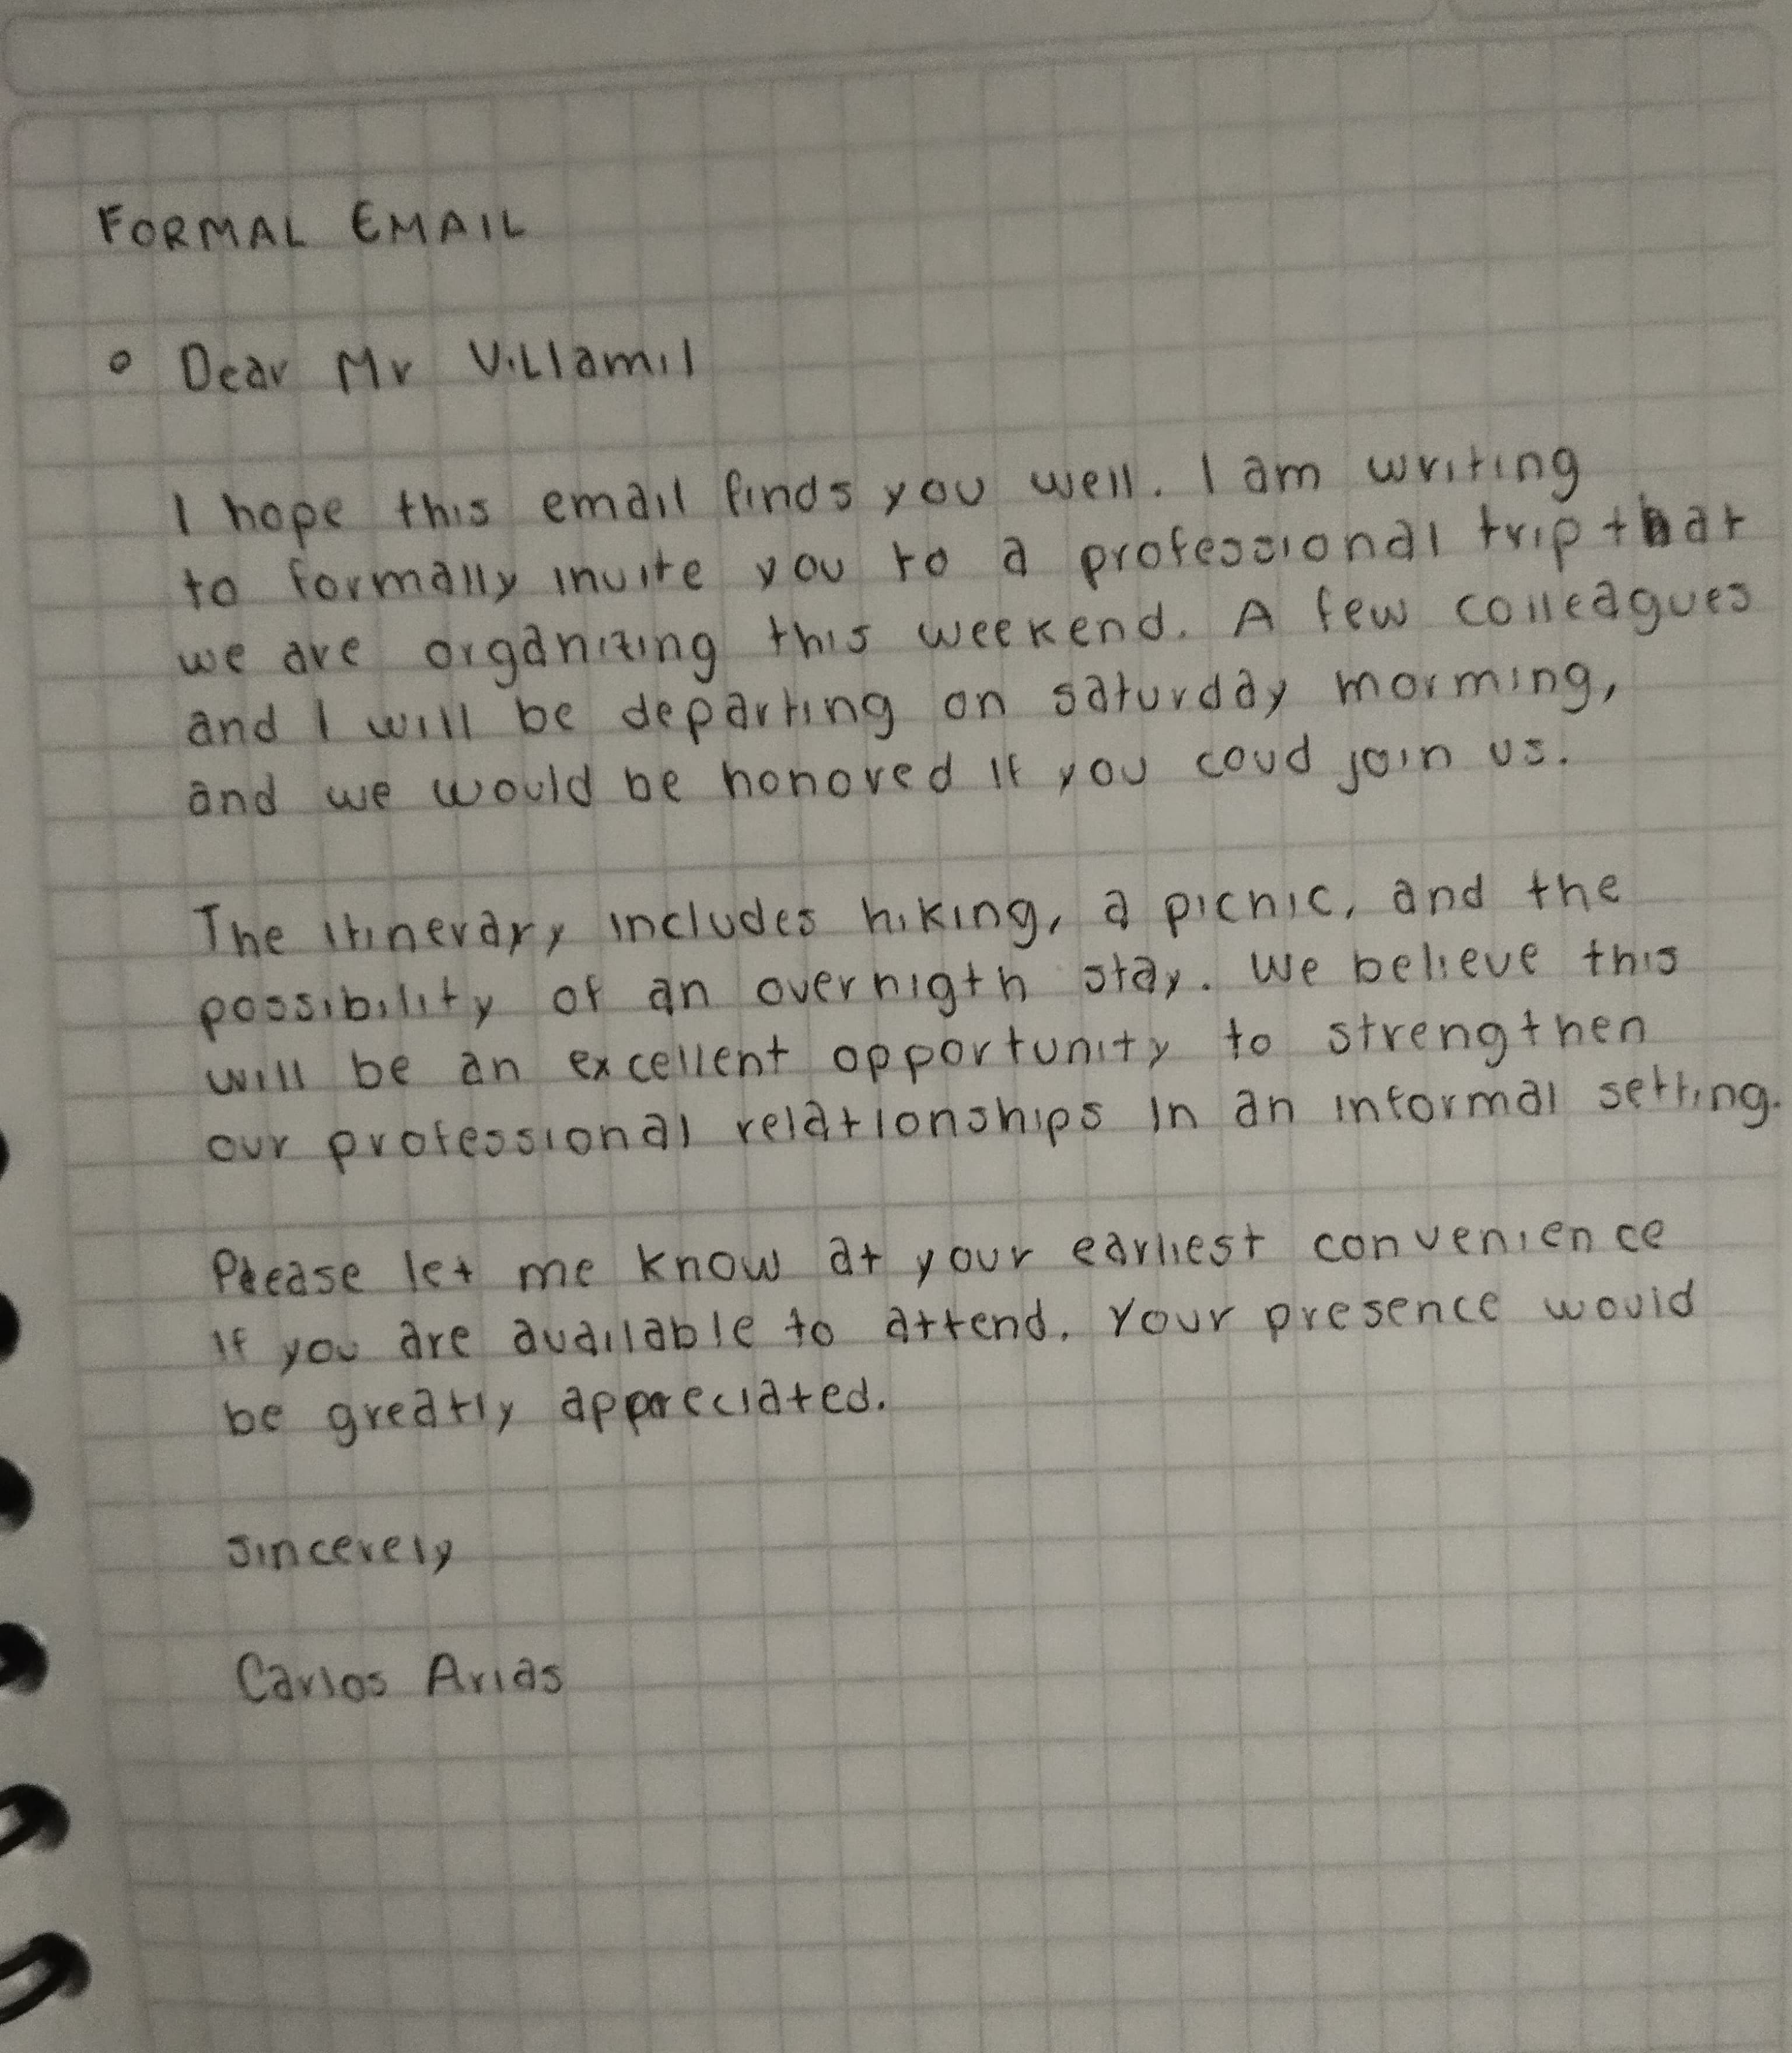 FORMAL EMAIL
° Dear Mr Villamil
I hope this email finds you well. I am writing
to formally invite you to a professional trip that
we are organizing this weekend. A few colleagues
and I will be departing on saturday morming,
and we would be honored if you coud join us.
The itinerary includes hiking, a picnic, and the
possibility of an overnigth stay. We believe this
will be an excellent opportunity to strengthen
our professional relationships in an informal setting.
Please let me know at your earliest convenience
if you are available to attend. Your presence would
be greatly appreciated.
sincerely
Carlos Arias